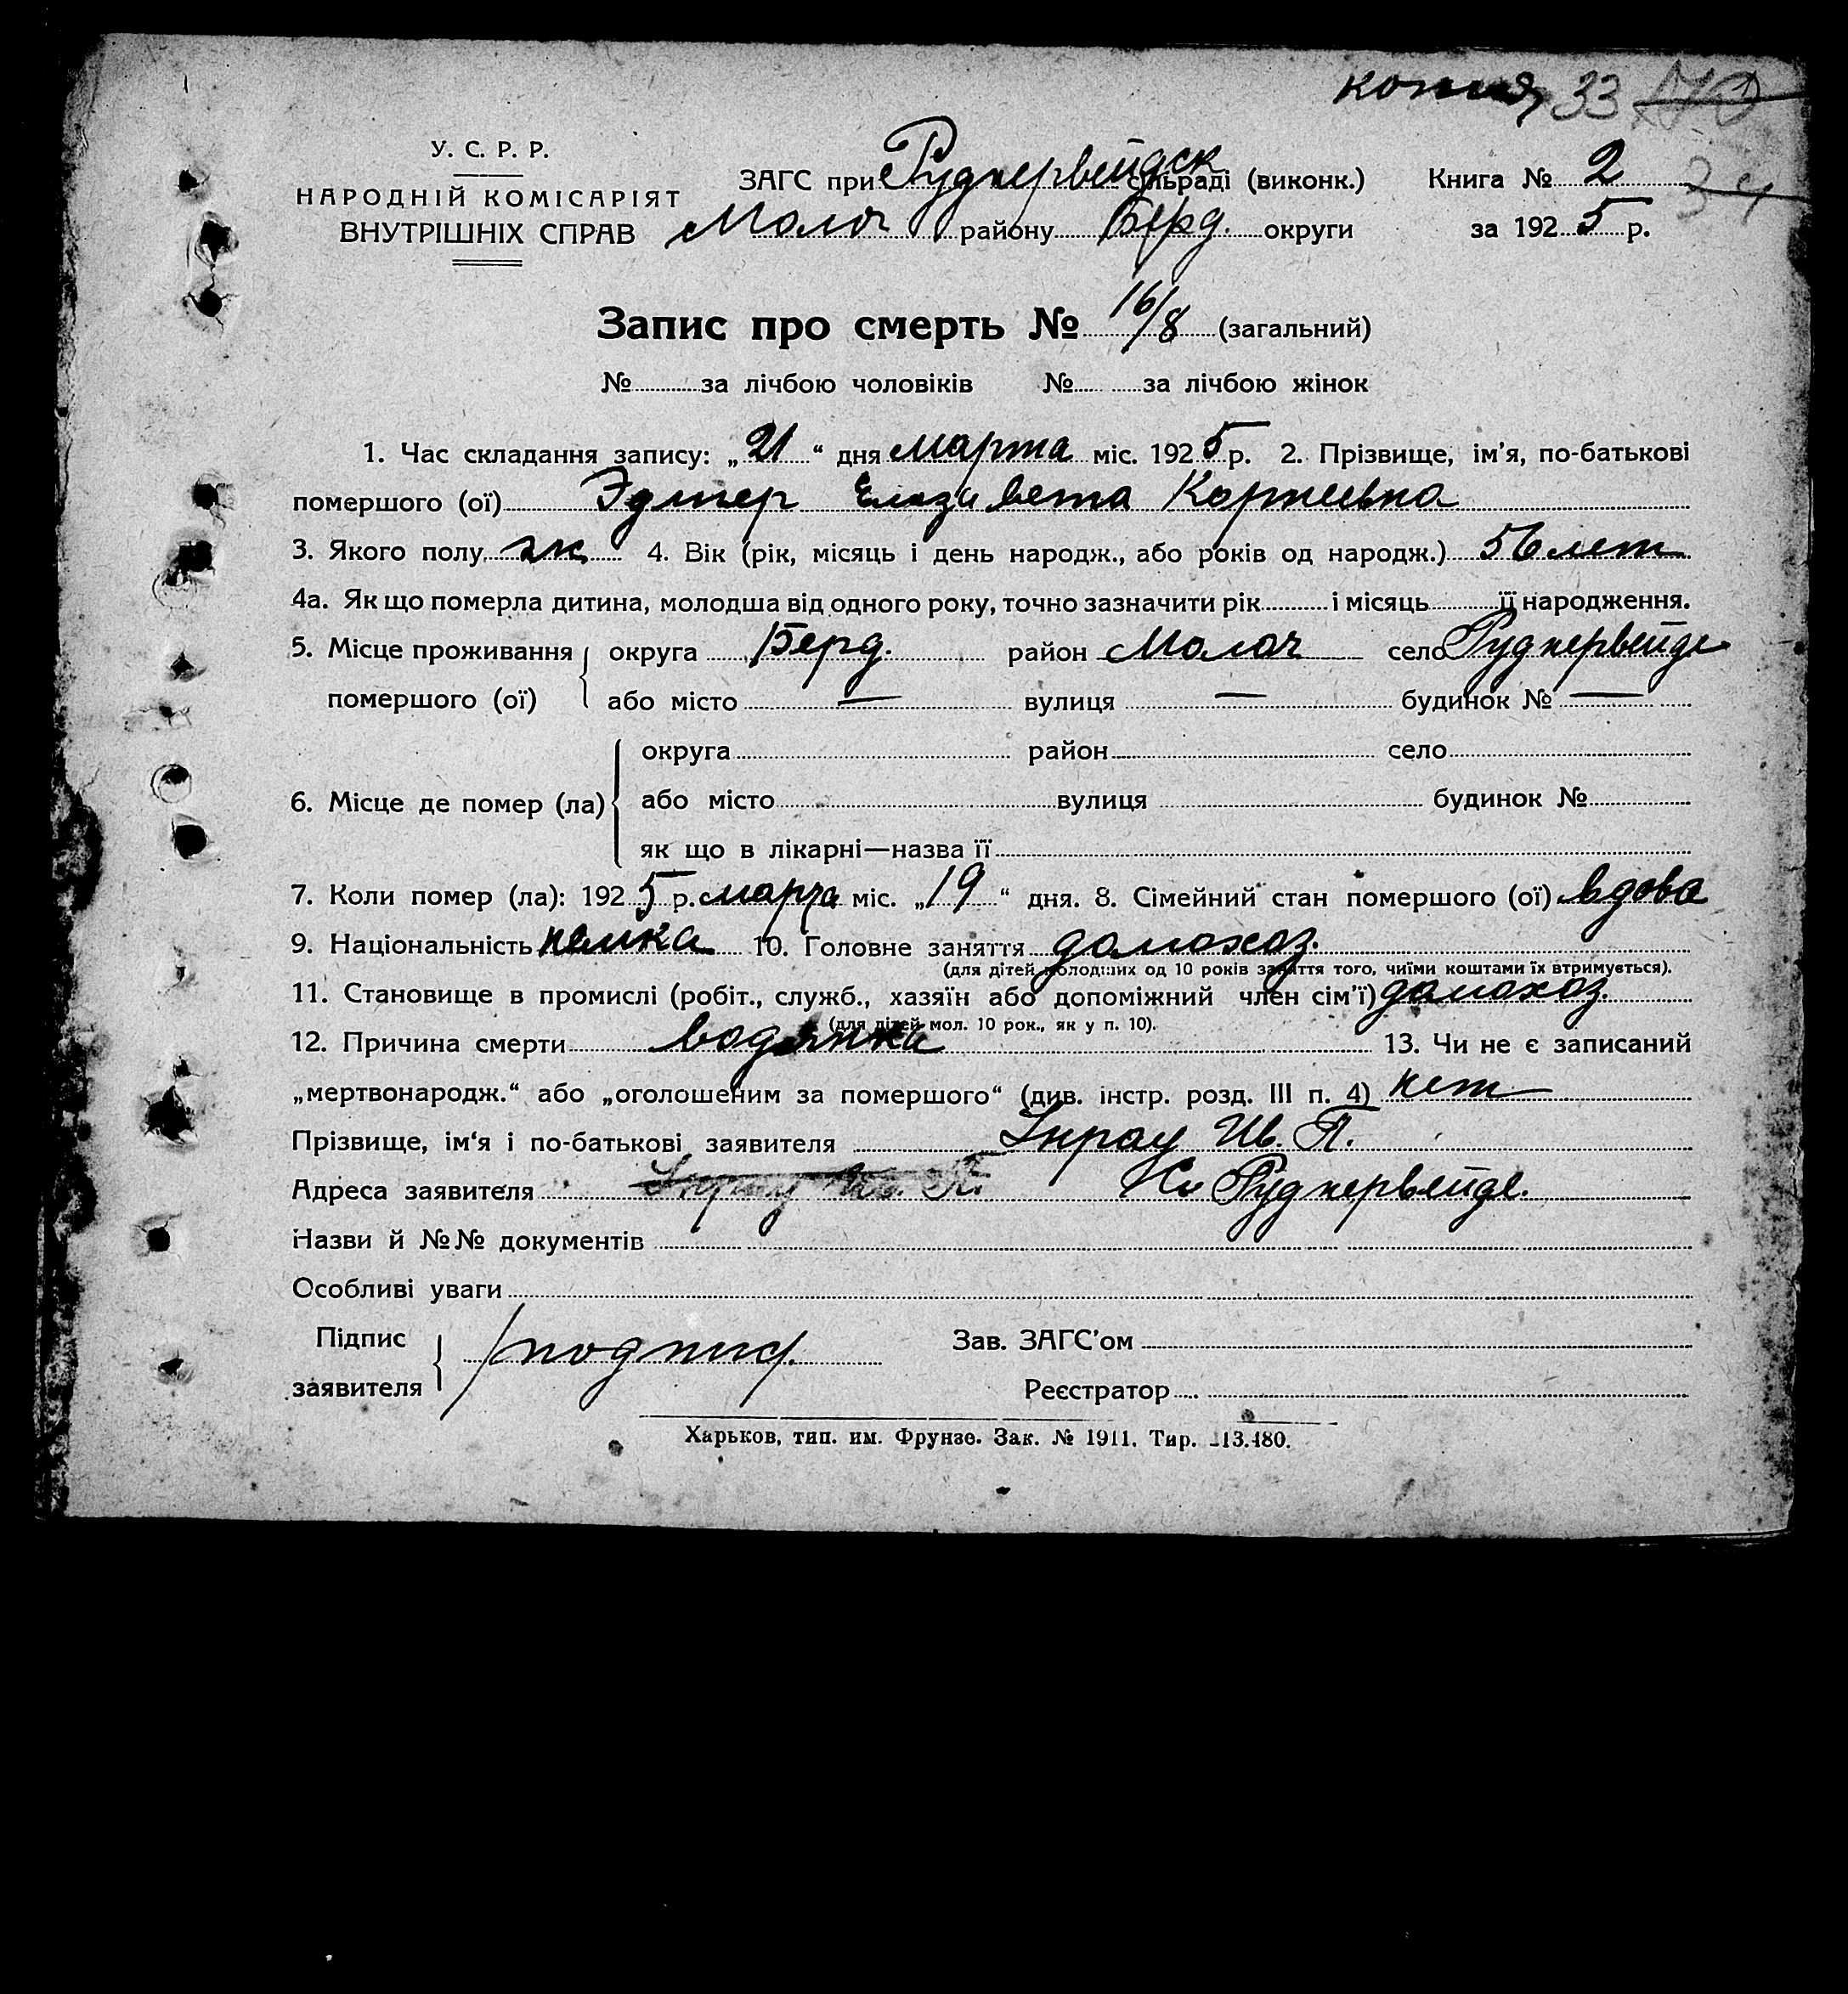 копия 33
У. С. Р. Р.
НАРОДНІЙ КОМІСАРІЯТ
ВНУТРІШНІХ СПРАВ
ЗАГС при Руднервейдск сільраді (виконк.) Книга № 2 34
Молоч району Берд. округи за 1925 р.
Запис про смерть № 16/8 (загальний)
№ за лічбою чоловіків № за лічбою жінок
1. Час складання запису: „21“ дня марта міс. 1925 р. 2. Прізвище, ім'я, по-батькові
помершого (ої) Эдигер Елизавета Корнеевна
3. Якого полу ж 4. Вік (рік, місяць і день народж., або років од народж.) 56 лет
4а. Як що померла дитина, молодша від одного року, точно зазначити рік і місяць її народження.
5. Місце проживання помершого (ої) округа Берд. район Молоч село Руднервейде
або місто — вулиця — будинок № —
6. Місце де помер (ла) округа район село
або місто вулиця будинок №
як що в лікарні—назва її
7. Коли помер (ла): 1925 р. марта міс. „19“ дня. 8. Сімейний стан помершого (ої) вдова
9. Національність немка 10. Головне заняття домохоз.
(для дітей молодших од 10 років заняття того, чиїми коштами їх втримується).
11. Становище в промислі (робіт., служб., хазяїн або допоміжний член сім'ї) домохоз.
(для дітей мол. 10 рок., як у п. 10).
12. Причина смерти водянка 13. Чи не є записаний
„мертвонародж.“ або „оголошеним за помершого“ (див. інстр. розд. III п. 4) нет
Прізвище, ім'я і по-батькові заявителя Унрау Ив. П.
Адреса заявителя Руднервейде.
Назви й №№ документів
Особливі уваги
Підпис заявителя /подпис/. Зав. ЗАГС'ом
Реєстратор
Харьков, тип. им. Фрунзе. Зак. № 1911. Тир. 113.480.